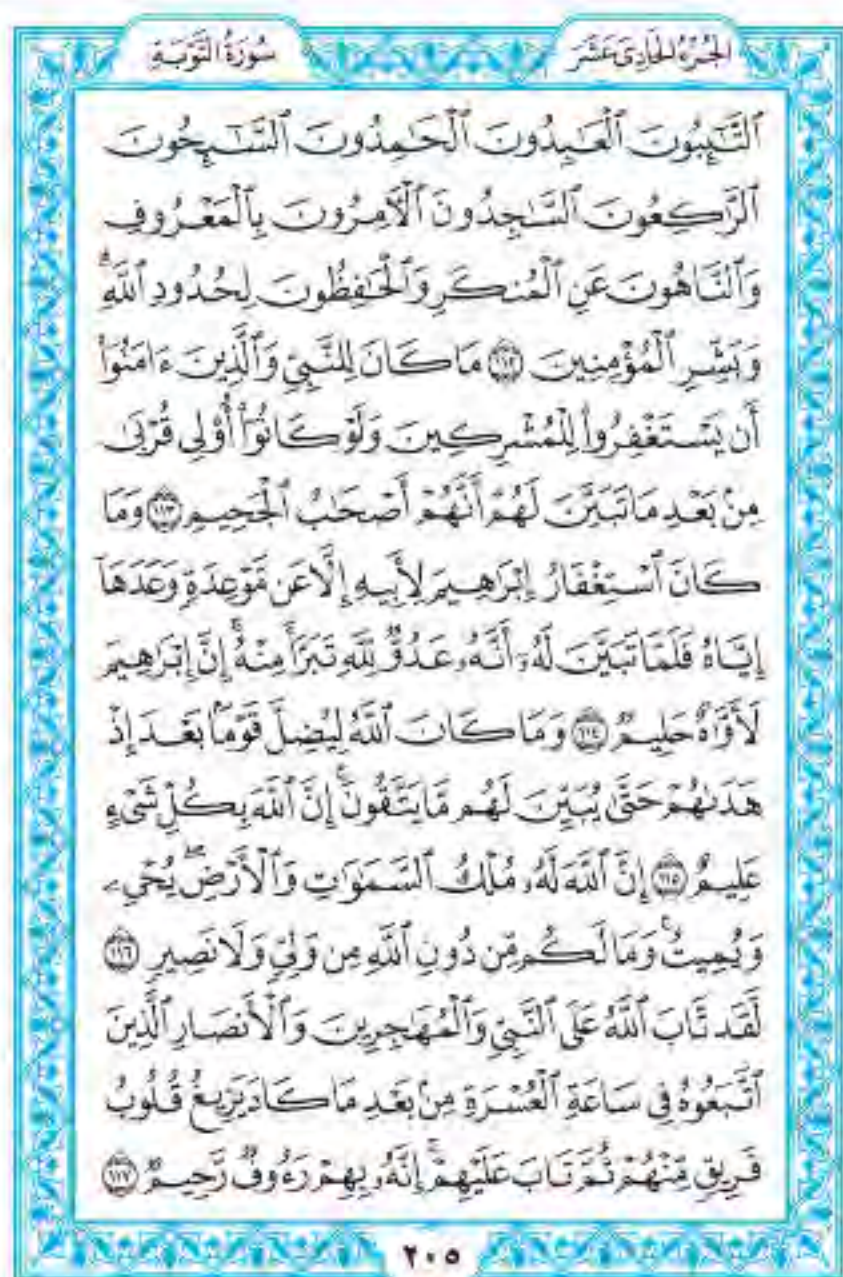 الجُزْءُ الحَادِيَ عَشَرَ
سُورَةُ التَّوْبَةِ
ٱلتَّٰٓئِبُونَ ٱلْعَٰبِدُونَ ٱلْحَٰمِدُونَ ٱلسَّٰٓئِحُونَ
ٱلرَّٰكِعُونَ ٱلسَّٰجِدُونَ ٱلْءَامِرُونَ بِٱلْمَعْرُوفِ
وَٱلنَّاهُونَ عَنِ ٱلْمُنكَرِ وَٱلْحَٰفِظُونَ لِحُدُودِ ٱللَّهِۗ
وَبَشِّرِ ٱلْمُؤْمِنِينَ ١١٢ مَا كَانَ لِلنَّبِىِّ وَٱلَّذِينَ ءَامَنُوٓا۟
أَن يَسْتَغْفِرُوا۟ لِلْمُشْرِكِينَ وَلَوْ كَانُوٓا۟ أُو۟لِى قُرْبَىٰ
مِنۢ بَعْدِ مَا تَبَيَّنَ لَهُمْ أَنَّهُمْ أَصْحَٰبُ ٱلْجَحِيمِ ١١٣ وَمَا
كَانَ ٱسْتِغْفَارُ إِبْرَٰهِيمَ لِأَبِيهِ إِلَّا عَن مَّوْعِدَةٍ وَعَدَهَآ
إِيَّاهُ فَلَمَّا تَبَيَّنَ لَهُۥٓ أَنَّهُۥ عَدُوٌّ لِّلَّهِ تَبَرَّأَ مِنْهُۚ إِنَّ إِبْرَٰهِيمَ
لَأَوَّٰهٌ حَلِيمٌ ١١٤ وَمَا كَانَ ٱللَّهُ لِيُضِلَّ قَوْمًۢا بَعْدَ إِذْ
هَدَىٰهُمْ حَتَّىٰ يُبَيِّنَ لَهُم مَّا يَتَّقُونَۚ إِنَّ ٱللَّهَ بِكُلِّ شَىْءٍ
عَلِيمٌ ١١٥ إِنَّ ٱللَّهَ لَهُۥ مُلْكُ ٱلسَّمَٰوَٰتِ وَٱلْأَرْضِۖ يُحْىِۦ
وَيُمِيتُۚ وَمَا لَكُم مِّن دُونِ ٱللَّهِ مِن وَلِىٍّ وَلَا نَصِيرٍ ١١٦
لَّقَد تَّابَ ٱللَّهُ عَلَى ٱلنَّبِىِّ وَٱلْمُهَٰجِرِينَ وَٱلْأَنصَارِ ٱلَّذِينَ
ٱتَّبَعُوهُ فِى سَاعَةِ ٱلْعُسْرَةِ مِنۢ بَعْدِ مَا كَادَ يَزِيغُ قُلُوبُ
فَرِيقٍ مِّنْهُمْ ثُمَّ تَابَ عَلَيْهِمْۚ إِنَّهُۥ بِهِمْ رَءُوفٌ رَّحِيمٌ ١١٧
٢٠٥